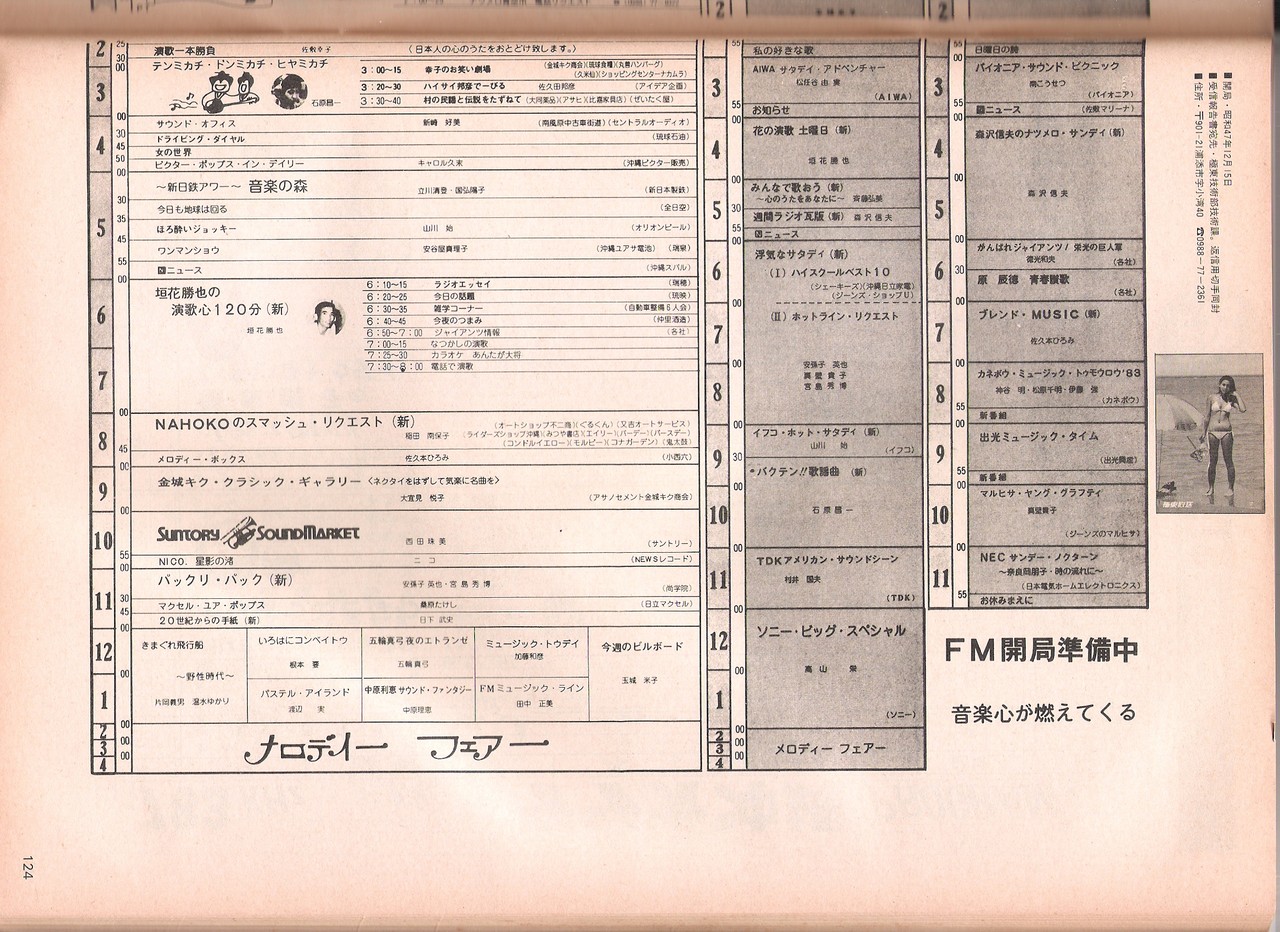 2
25
30
00
演歌一本勝負
佐敷幸子
(日本人の心のうたをおとどけ致します。)
テンミカチ・ドンミカチ・ヒヤミカチ
石原昌一
3
3:00〜15 幸子のお笑い劇場
(金城キク商会)(琉球食糧)(丸善ハンバーグ)
(久米仙)(ショッピングセンターナカムラ)
3:20〜30 ハイサイ邦彦でーびる 佐久田邦彦 (アイデア企画)
3:30〜40 村の民謡と伝説をたずねて (大同薬品)(アサヒ)(比嘉家具店)(ぜいたく屋)
00
サウンド・オフィス 新崎 好美 (南風原中古車街道)(セントラルオーディオ)
30
4
ドライビング・ダイヤル (琉球石油)
45
女の世界
50
ビクター・ポップス・イン・デイリー キャロル久末 (沖縄ビクター販売)
00
〜新日鉄アワー〜 音楽の森 立川清登・国弘陽子 (新日本製鉄)
30
5
今日も地球は回る (全日空)
35
ほろ酔いジョッキー 山川 始 (オリオンビール)
45
ワンマンショウ 安谷屋真理子 (沖縄ユアサ電池) (瑞泉)
55
ニュース (沖縄スバル)
00
垣花勝也の
演歌心120分(新)
垣花勝也
6
7
6:10〜15 ラジオエッセイ (瑞穂)
6:20〜25 今日の話題 (琉映)
6:30〜35 雑学コーナー (自動車整備6人会)
6:40〜45 今夜のつまみ (仲里酒造)
6:50〜7:00 ジャイアンツ情報 (各社)
7:00〜15 なつかしの演歌
7:25〜30 カラオケ あんたが大将
7:30〜8:00 電話で演歌
00
8
NAHOKOのスマッシュ・リクエスト(新)
稲田 南保子
(オートショップ不二商)(ぐるくん)(又吉オートサービス)
(ライダーズショップ沖縄)(みつや書店)(エイリー)(バーデー)(バースデー)
(コンドルイエロー)(モルビー)(コナガーデン)(鬼太鼓)
45
メロディー・ボックス 佐久本ひろみ (小西六)
00
9
金城キク・クラシック・ギャラリー <ネクタイをはずして気楽に名曲を>
大宜見 悦子 (アサノセメント金城キク商会)
00
10
SUNTORY SOUNDMARKET 西田 珠美 (サントリー)
55
NICO. 星影の渚 ニコ (NEWSレコード)
00
バックリ・バック(新) 安孫子 英也・宮島 秀博 (尚学院)
11
30
マクセル・ユア・ポップス 桑原たけし (日立マクセル)
45
20世紀からの手紙(新) 日下 武史
00
12
きまぐれ飛行船
〜野性時代〜
片岡義男 温水ゆかり
いろはにコンペイトウ
根本 要
五輪真弓 夜のエトランゼ
五輪真弓
ミュージック・トゥデイ
加藤和彦
今週のビルボード
玉城 米子
00
1
パステル・アイランド
渡辺 実
中原利恵 サウンド・ファンタジー
中原理恵
FMミュージック・ライン
田中 正美
00
2
00
3
00
4
メロディー フェアー
2
55
私の好きな歌
3
AIWA サタデイ・アドベンチャー
松任谷由実
(AIWA)
55
お知らせ
00
4
花の演歌 土曜日(新)
垣花勝也
00
5
みんなで歌おう(新)
〜心のうたをあなたに〜 斉藤弘美
30
週間ラジオ瓦版(新) 森沢信夫
55
ニュース
00
6
浮気なサタディ(新)
(I)ハイスクールベスト10
(シェーキーズ)(沖縄日立家電)
(ジーンズ・ショップU)
00
7
(II)ホットライン・リクエスト
安孫子 英也
真壁 貴子
宮島 秀博
00
8
00
イフコ・ホット・サタデイ(新)
山川 始
(イフコ)
9
30
バクテン!!歌謡曲(新)
00
10
石原昌一
00
11
TDKアメリカン・サウンドシーン
村井 国夫
(TDK)
00
12
ソニー・ビッグ・スペシャル
高山 栄
00
1
(ソニー)
00
2
00
3
00
4
メロディー フェアー
2
55
日曜日の詩
3
パイオニア・サウンド・ピクニック
南こうせつ
(パイオニア)
55
ニュース (佐敷マリーナ)
00
4
森沢信夫のナツメロ・サンディ(新)
00
5
森沢信夫
00
がんばれジャイアンツ/栄光の巨人軍
徳光和夫 (各社)
6
30
原 辰徳 青春讃歌
(各社)
00
7
ブレンド・MUSIC(新)
佐久本ひろみ
00
8
カネボウ・ミュージック・トゥモウロウ'83
神谷 明・松原千明・伊藤 強
(カネボウ)
55
新番組
00
9
出光ミュージック・タイム
(出光興産)
55
新番組
00
10
マルヒサ・ヤング・グラフティ
真壁貴子
(ジーンズのマルヒサ)
00
11
NEC サンデー・ノクターン
〜奈良岡朋子・時の流れに〜
(日本電気ホームエレクトロニクス)
55
お休みまえに
FM開局準備中
音楽心が燃えてくる
■開局・昭和47年12月15日
■受信報告書宛先・極東技術部技術課。返信用切手同封
■住所・〒901-21浦添市字小湾40 ☎0988-77-2361
極東放送
124